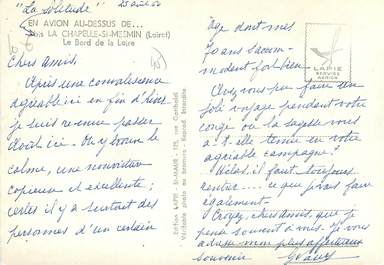 "La Solitude" 25 août 60
EN AVION AU-DESSUS DE...
bis LA CHAPELLE-St-MESMIN (Loiret)
Le Bord de la Loire
Chers amis,
Après une convalescence
agréable ici en fin d'hiver
je suis revenue passer
août ici. On y trouve le
calme, une nourriture
copieuse et excellente;
certes il y a surtout des
personnes d'un certain
Edition LAPIE - St-MAUR - 125, rue Garibaldi
Véritable photo au bromure - Reprod. interdite
LAPIE
SERVICE
AÉRIEN
âge dont mes
70 ans s'accom-
modent fort bien.
Avez-vous pu faire un
joli voyage pendant votre
congé ou la sagesse vous
a-t-elle tenue en votre
agréable campagne?
Hélas, il faut toujours
rentrer.... ce que je vais faire
également.
Croyez, chers amis, que je
pense souvent à vous. Je vous
adresse mon plus affectueux
souvenir